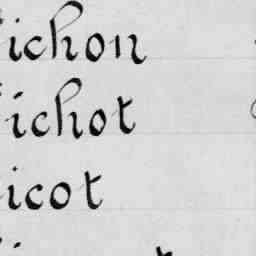 ichon
ichot
icot